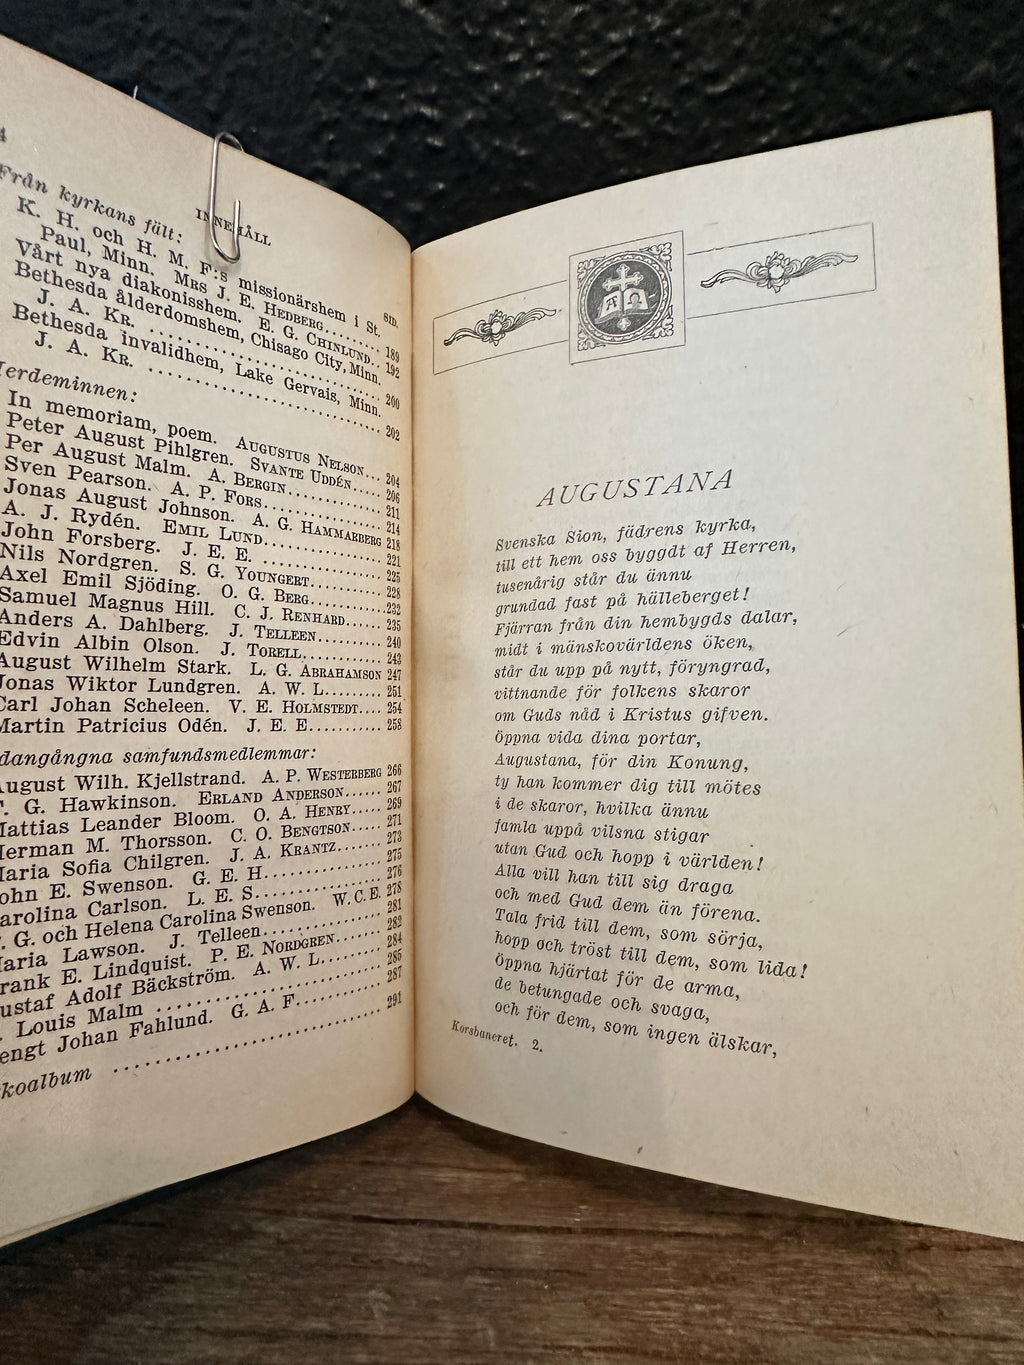 4
INNEHÅLL
SID.
Från kyrkans fält:
K. H. och H. M. F:s missionärshem i St.
Paul, Minn. MRS J. E. HEDBERG........ 189
Vårt nya diakonisshem. E. G. CHINLUND.. 192
Bethesda ålderdomshem, Chisago City, Minn.
J. A. KR. .............................. 200
Bethesda invalidhem, Lake Gervais, Minn.
J. A. KR. .............................. 202
erdeminnen:
In memoriam, poem. AUGUSTUS NELSON... 204
Peter August Pihlgren. SVANTE UDDÉN..... 206
Per August Malm. A. BERGIN............. 211
Sven Pearson. A. P. FORS................ 214
Jonas August Johnson. A. G. HAMMARBERG 218
A. J. Rydén. EMIL LUND................. 221
John Forsberg. J. E. E. ................. 225
Nils Nordgren. S. G. YOUNGERT.......... 228
Axel Emil Sjöding. O. G. BERG........... 232
Samuel Magnus Hill. C. J. RENHARD..... 235
Anders A. Dahlberg. J. TELLEEN......... 240
Edvin Albin Olson. J. TORELL........... 243
August Wilhelm Stark. L. G. ABRAHAMSON 247
Jonas Wiktor Lundgren. A. W. L....... 251
Carl Johan Scheleen. V. E. HOLMSTEDT.... 254
Martin Patricius Odén. J. E. E.......... 258
dangångna samfundsmedlemmar:
August Wilh. Kjellstrand. A. P. WESTERBERG 266
. G. Hawkinson. ERLAND ANDERSON...... 267
Mattias Leander Bloom. O. A. HENRY..... 269
Herman M. Thorsson. C. O. BENGTSON..... 271
Maria Sofia Chilgren. J. A. KRANTZ....... 273
John E. Swenson. G. E. H............... 275
Carolina Carlson. L. E. S................ 276
. G. och Helena Carolina Swenson. W. C. E. 278
Maria Lawson. J. Telleen................. 281
Frank E. Lindquist. P. E. NORDGREN...... 282
Gustaf Adolf Bäckström. A. W. L......... 284
. Louis Malm ........................... 285
engt Johan Fahlund. G. A. F............ 287
koalbum ................................ 291
A Ω
AUGUSTANA
Svenska Sion, fädrens kyrka,
till ett hem oss byggdt af Herren,
tusenårig står du ännu
grundad fast på hälleberget!
Fjärran från din hembygds dalar,
midt i mänskovärldens öken,
står du upp på nytt, föryngrad,
vittnande för folkens skaror
om Guds nåd i Kristus gifven.
Öppna vida dina portar,
Augustana, för din Konung,
ty han kommer dig till mötes
i de skaror, hvilka ännu
famla uppå vilsna stigar
utan Gud och hopp i världen!
Alla vill han till sig draga
och med Gud dem än förena.
Tala frid till dem, som sörja,
hopp och tröst till dem, som lida!
Öppna hjärtat för de arma,
de betungade och svaga,
och för dem, som ingen älskar,
Korsbaneret. 2.